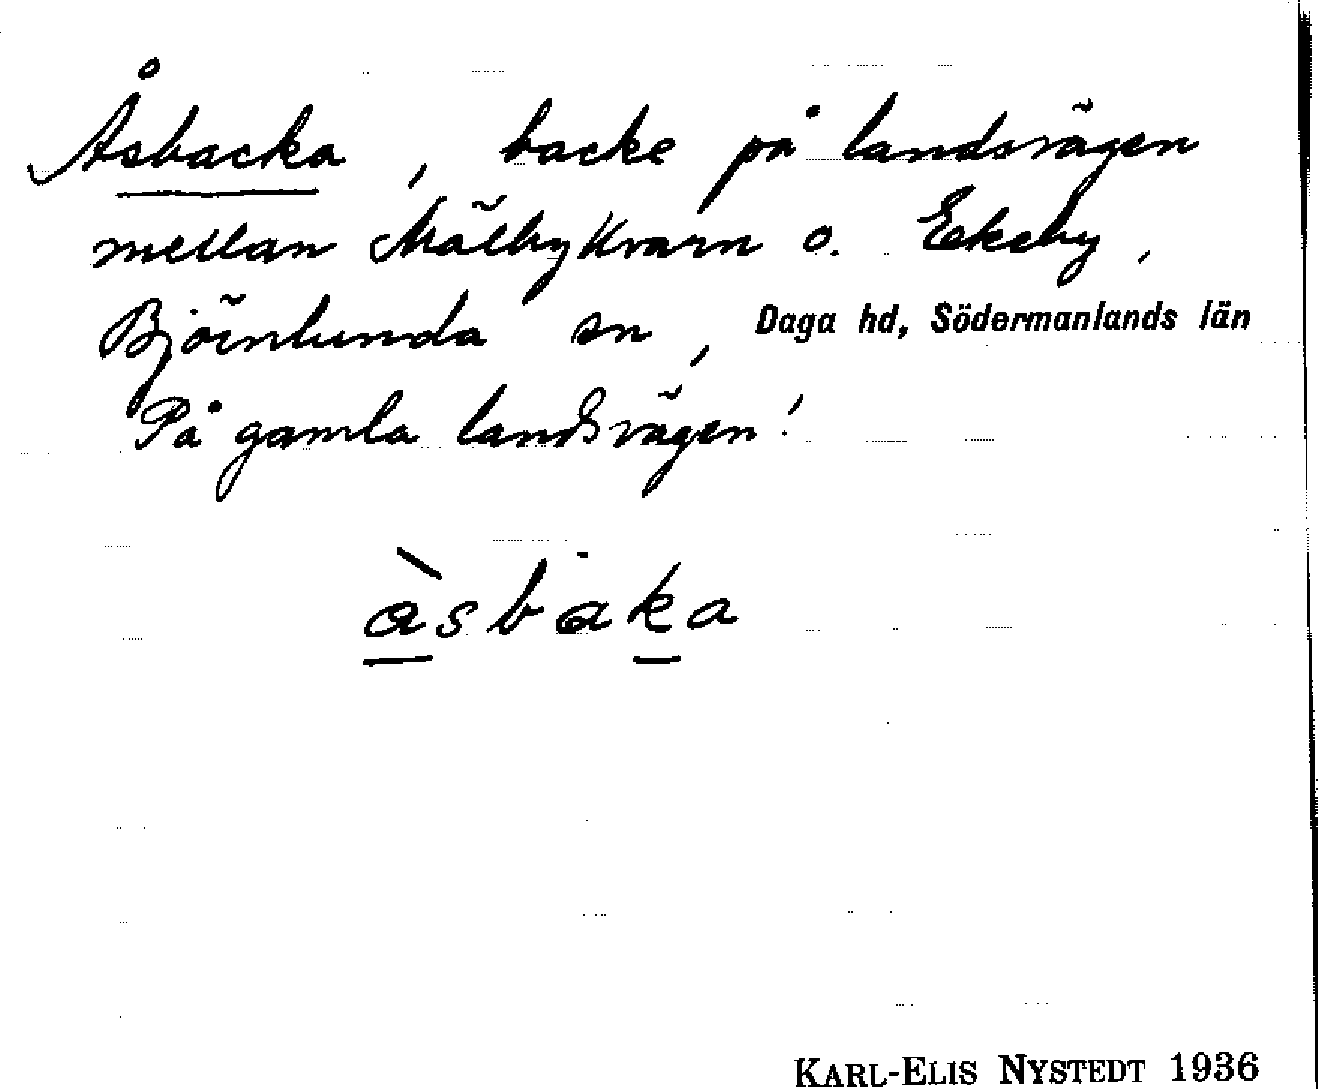 Åsbacka, backe på landsvägen
mellan Mälby Kvarn o. Ekeby,
Björnlunda sn, Daga hd, Södermanlands län
På gamla landsvägen!
àsbaka
KARL-ELIS NYSTEDT 1936